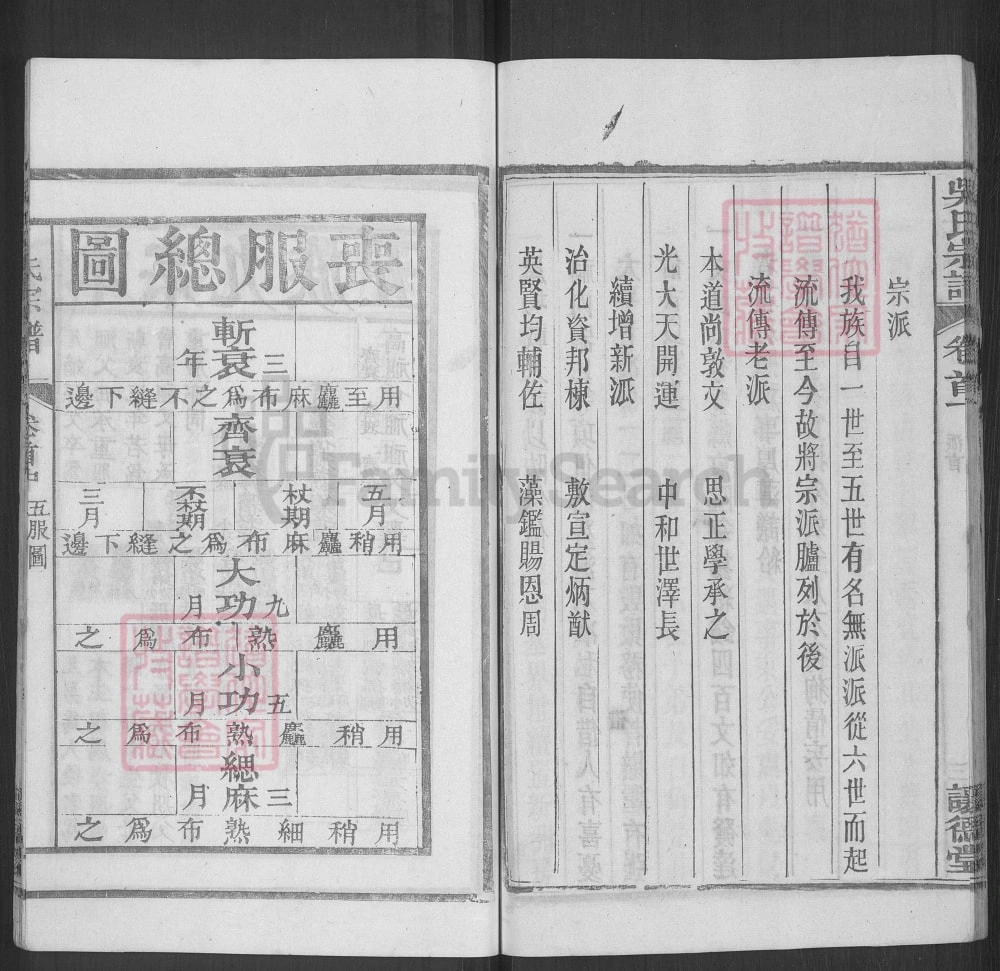 吳氏宗譜 卷首 讓德堂
宗派
我族自一世至五世有名無派派從六世而起
流傳至今故將宗派臚列於後
流傳老派
本道尚敦文 思正學承之
光大天開運 中和世澤長
續增新派
治化資邦棟 敷宣定炳猷
英賢均輔佐 藻鑑賜恩周
喪服總圖
斬衰三年
用至麤麻布為之不縫下邊
齊衰
五月 杖期 不杖期 三月
用稍麤麻布為之縫下邊
大功九月
用麤熟布為之
小功五月
用稍麤熟布為之
緦麻三月
用稍細熟布為之
氏宗譜 卷首 五服圖
FamilySearch